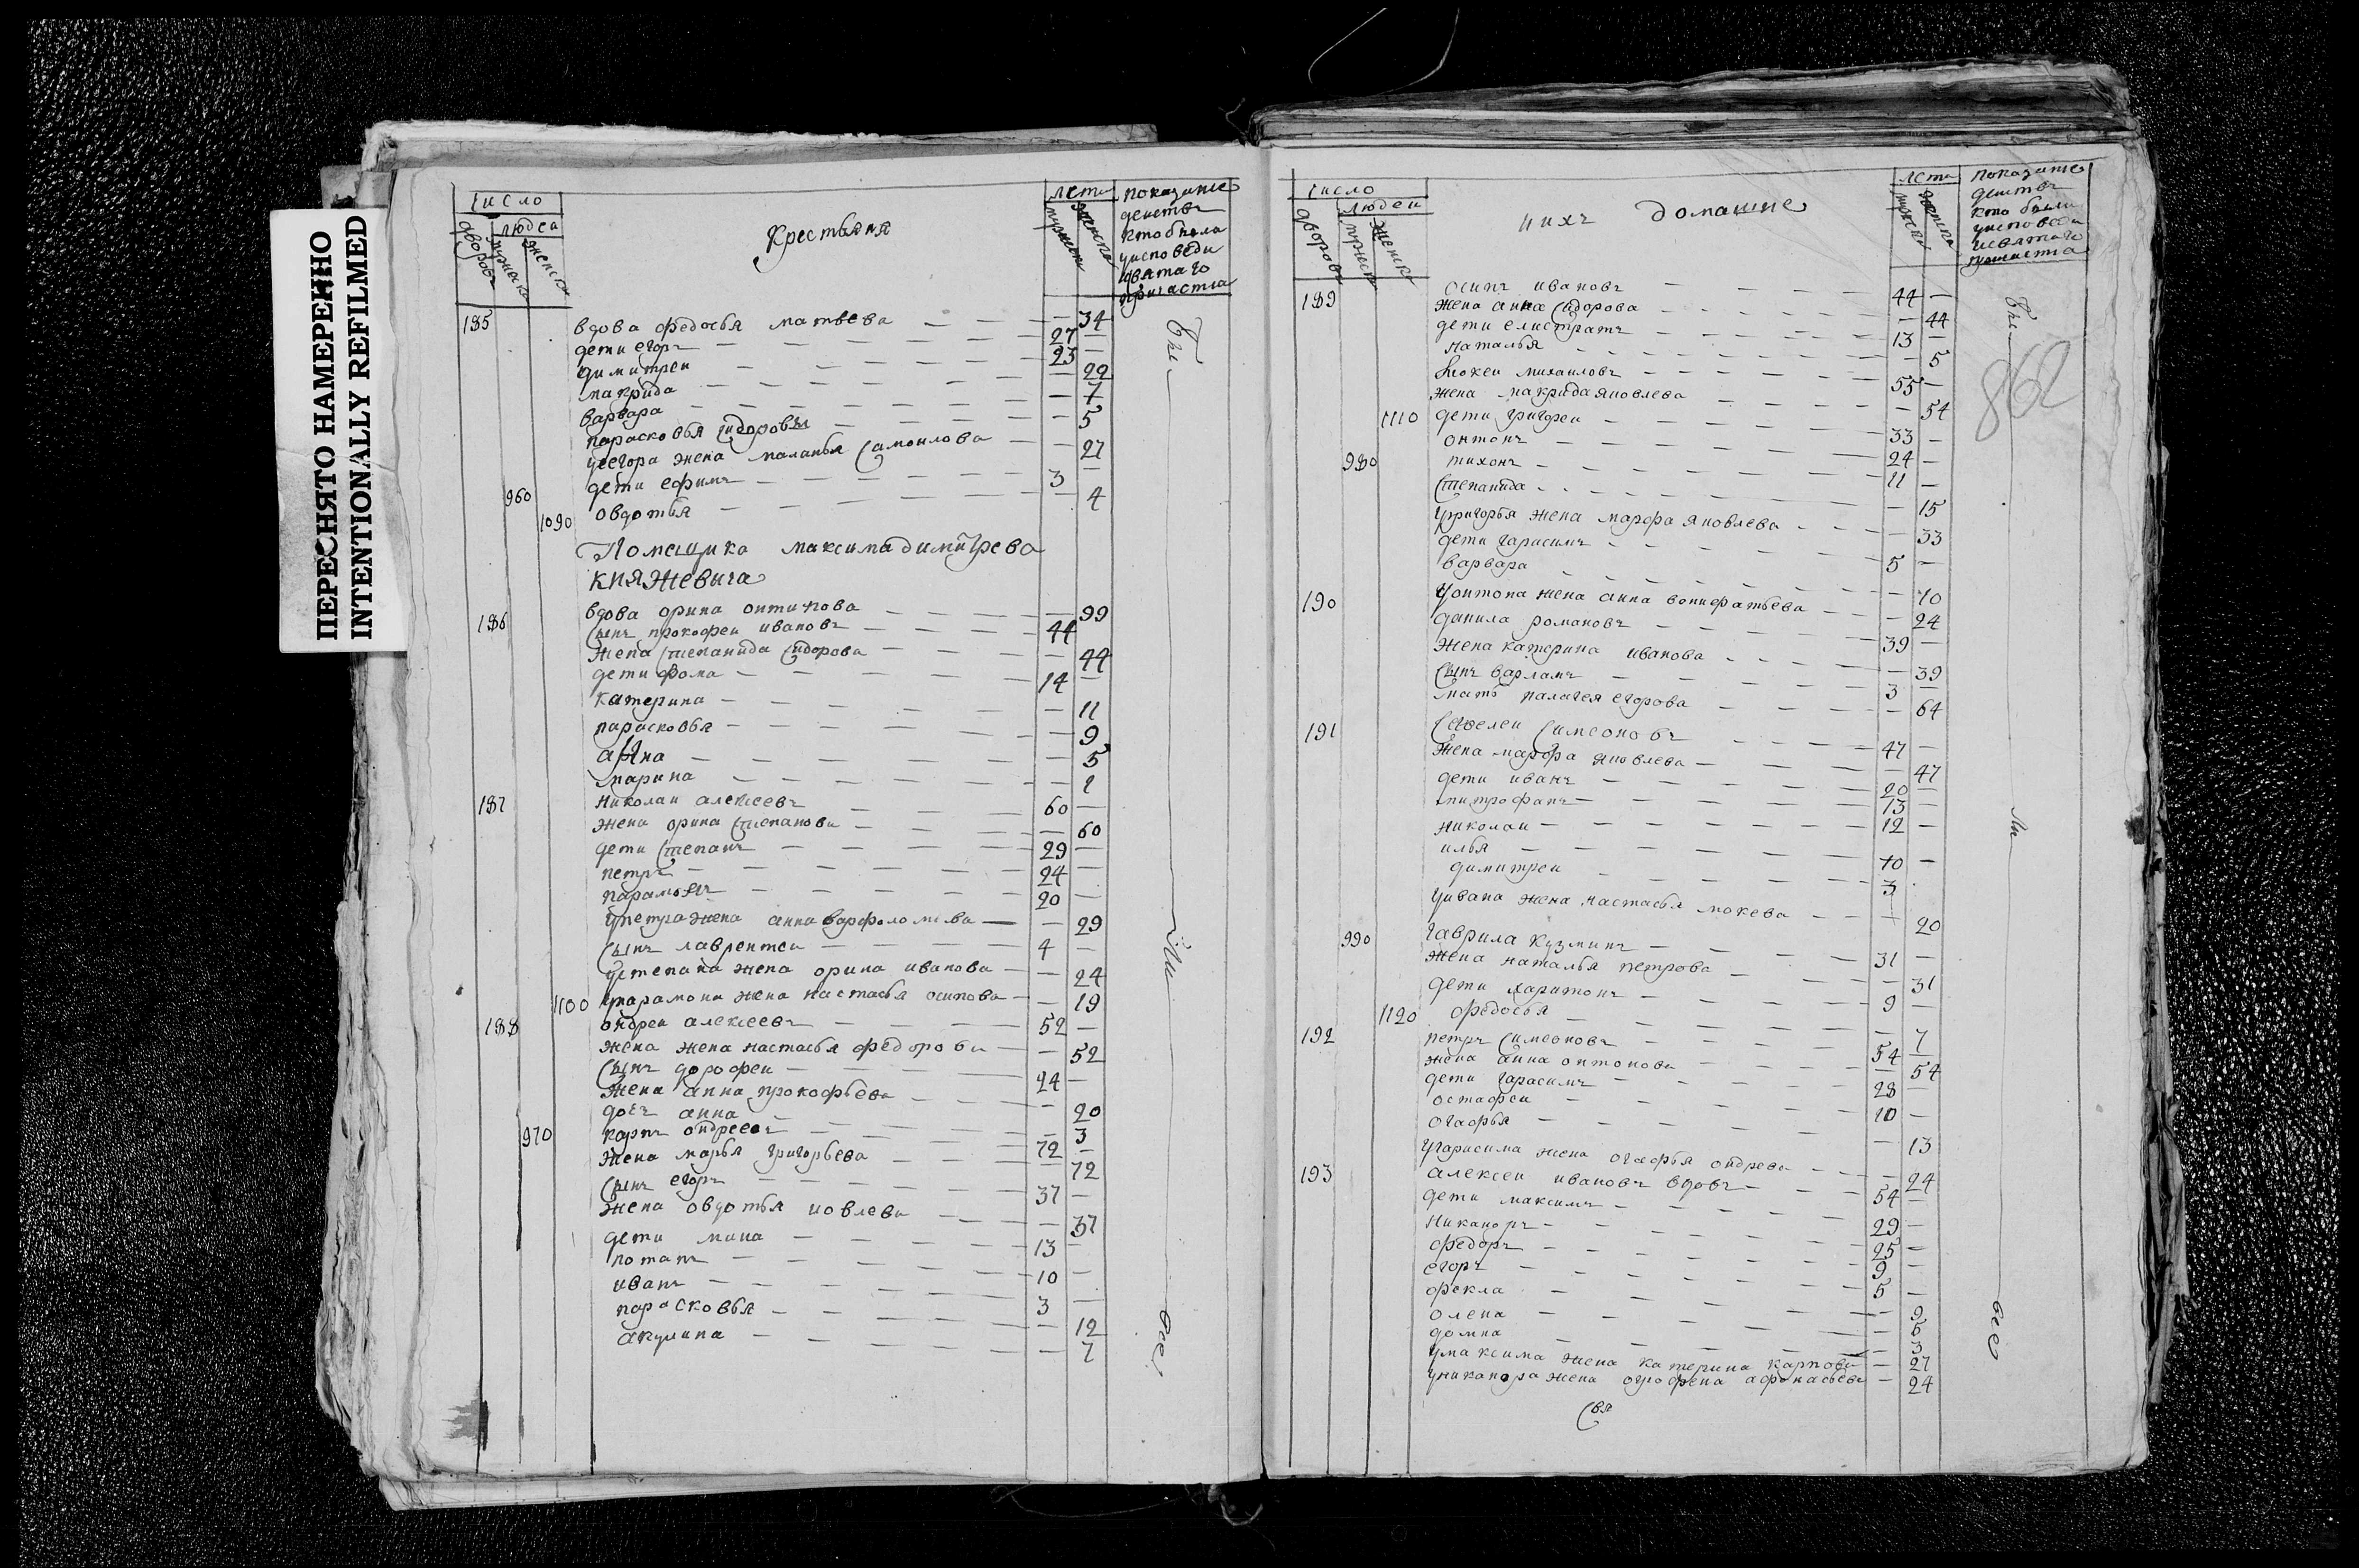 ПЕРЕСНЯТО НАМЕРЕННО
INTENTIONALLY REFILMED
число
людеи
дворовъ мужеска женска
Крестьяня
лета
мужеска женска
показание
деиствъ
кто была
уисповеди
святаго
причастia
185 вдова федосья матвева — 34
дети егоръ 27 —
димитреи 23 —
макрида — 22
варвара — 7
парасковья сидоровы — 5
уегора жена маланья самоилова — 27
дети ефимъ 3 —
960 1090 овдотья — 4
Помещика максима димитрева
княжевича
186 вдова орина онтипова — 99
сынъ прокофеи ивановъ 44
жена степанида сидорова — 44
дети фома 14 —
катерина — 11
парасковья — 9
анна — 5
марина — 2
187 николаи алексеевъ 60 —
жена орина степанова — 60
дети степанъ 29 —
петръ 24 —
парамонъ 20 —
упетра жена анна варфоломева — 29
сынъ лаврентеи 4 —
устепана жена орина иванова — 24
1100 упарамона жена настасья осипова — 19
188 ондреи алексеевъ 52 —
жена жена настасья федорова — 52
сынъ дорофеи 24 —
жена анна прокофьева — 20
дочь анна — 3
970 карпъ ондреевъ 72 —
жена марья григорьева — 72
сынъ егоръ 37 —
жена овдотья иовлева — 37
дети мина 13 —
потапъ 10 —
иванъ 3 —
парасковья — 12
акулина — 7
Бы
ли
все
число
людеи
дворовъ мужеска женска
ихъ домашние
лета
мужеска женска
показание
деиствъ
кто были
уисповеди
исвятаго
причастia
862
189 осипъ ивановъ 44 —
жена анна сидорова — 44
дети елистратъ 13 —
наталья — 5
мокеи михаиловъ 55 —
жена макрида яковлева — 54
1110 дети григореи 33 —
онтонъ 24 —
980 тихонъ 11 —
степанида — 15
угригорья жена марфа яковлева — 33
дети гарасимъ 5 —
варвара — 10
уонтона жена анна вонифатьева — 24
190 данила романовъ 39 —
жена катерина иванова — 39
сынъ варламъ 3 —
мать палагея егорова — 64
191 савелеи симеоновъ 47 —
жена марфа яковлева — 47
дети иванъ 20 —
митрофанъ 13 —
николаи 12 —
илья 10 —
димитреи 3
уивана жена настасья мокева — 20
990 гаврила кузминъ 31 —
жена наталья петрова — 31
дети харитонъ 9 —
1120 федосья — 7
192 петръ симеоновъ 54 —
жена анна онтонова — 54
дети гарасимъ 28
остафеи 10 —
огафья — 13
угарасима жена огафья ондрева — 24
193 алексеи ивановъ вдовъ 54 —
дети максимъ 29 —
никаноръ 25 —
федоръ 9 —
егоръ 5 —
фекла — 9
олена — 6
домна — 3
умаксима жена катерина карпова — 27
уникапора жена огрофена афонасьева — 24
Свя
Бы
ли
все